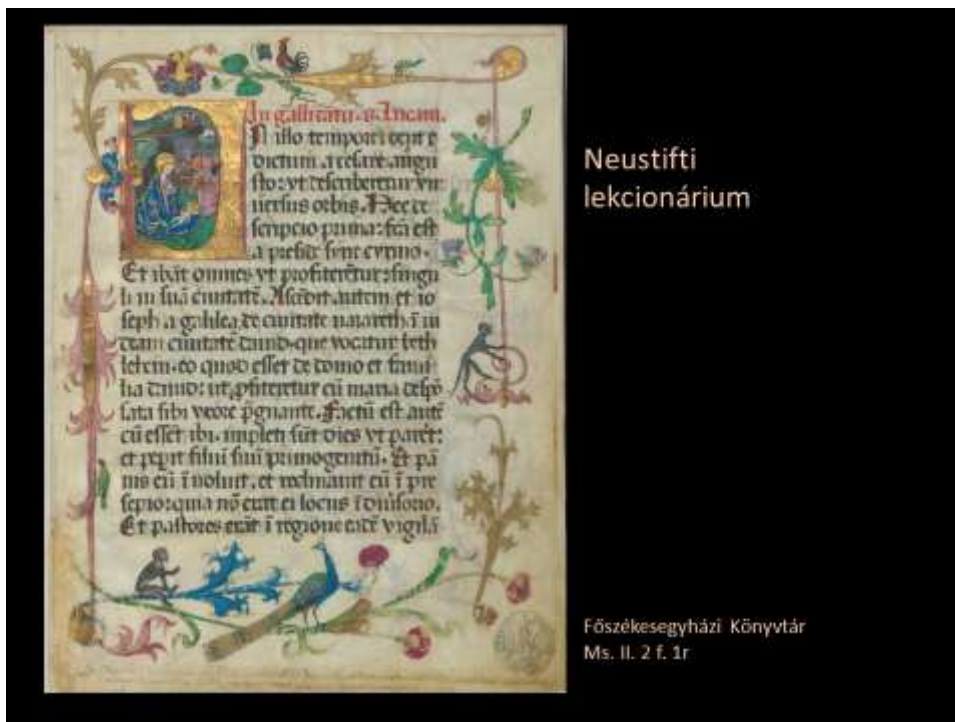 In gallicātu. s. Lucam.
N illo tempore exiit e
dictum a cesare augu
sto: vt describeretur vni
uersus orbis. Hec de
scripcio prima: fcā est
a preside syrie cyrino.
Et ibāt omnes vt profiterētur: singu
li in suā ciuitatē. Ascēdit autem et io
seph a galilea de ciuitate nazareth ī iu
deam ciuitatē dauid. que vocatur beth
lehem. eo quod esset de domo et fami
lia dauid: ut ꝓfiteretur cū maria despō
sata sibi vxore p̄gnante. Factū est autē
cū essēt ibi. impleti sūt dies vt paret:
et peꝑit filiū suū primogenitū. Et pā
nis eū īuoluit. et reclinauit eū ī pre
sepio: quia nō erat ei locus ī diuisorio.
Et pastores erāt ī regione eadē vigilā
Neustifti
lekcionárium
Főszékesegyházi Könyvtár
Ms. II. 2 f. 1r